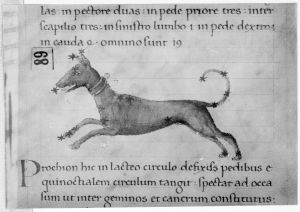 las · in pectore duas : in pede priore tres : inter
scapilio tres : in sinistro lumbo 1 in pede dextro 1
in cauda 2 · omnino sunt 19
68
Prochion hic in lacteo circulo defixis pedibus e
quinoctialem circulum tangit : spectat ad occa
sum ut inter geminos et cancrum constitutus :